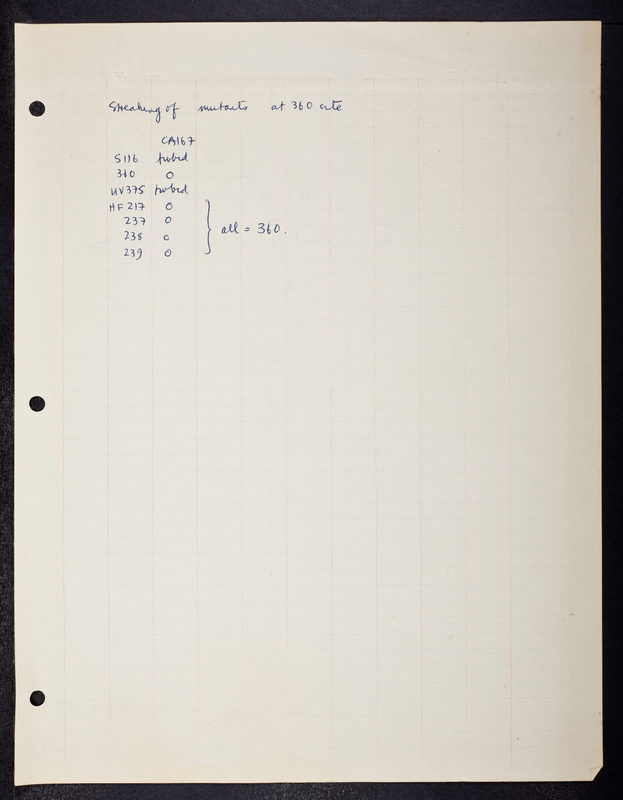 Streaking of mutants at 360 site
CA167
S116
360 0
UV375
HF217 0
237 0
238 0 all = 360.
239 0